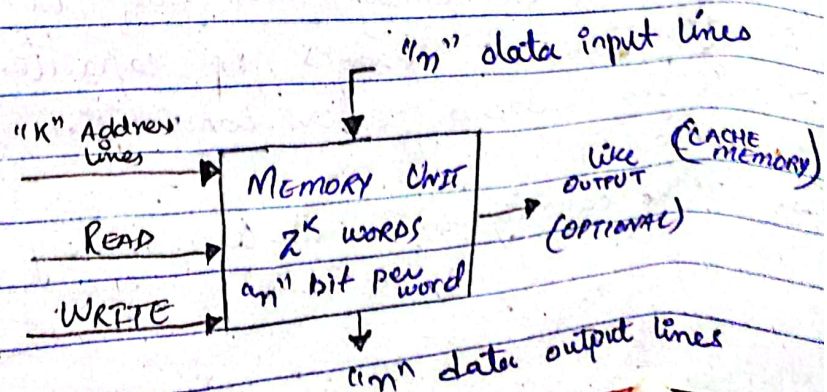 "n" data input lines
"K" Address
lines
READ
WRITE
MEMORY UNIT
2^K WORDS
"n" bit per word
like
OUTPUT
(OPTIONAL)
(CACHE
MEMORY)
"n" data output lines